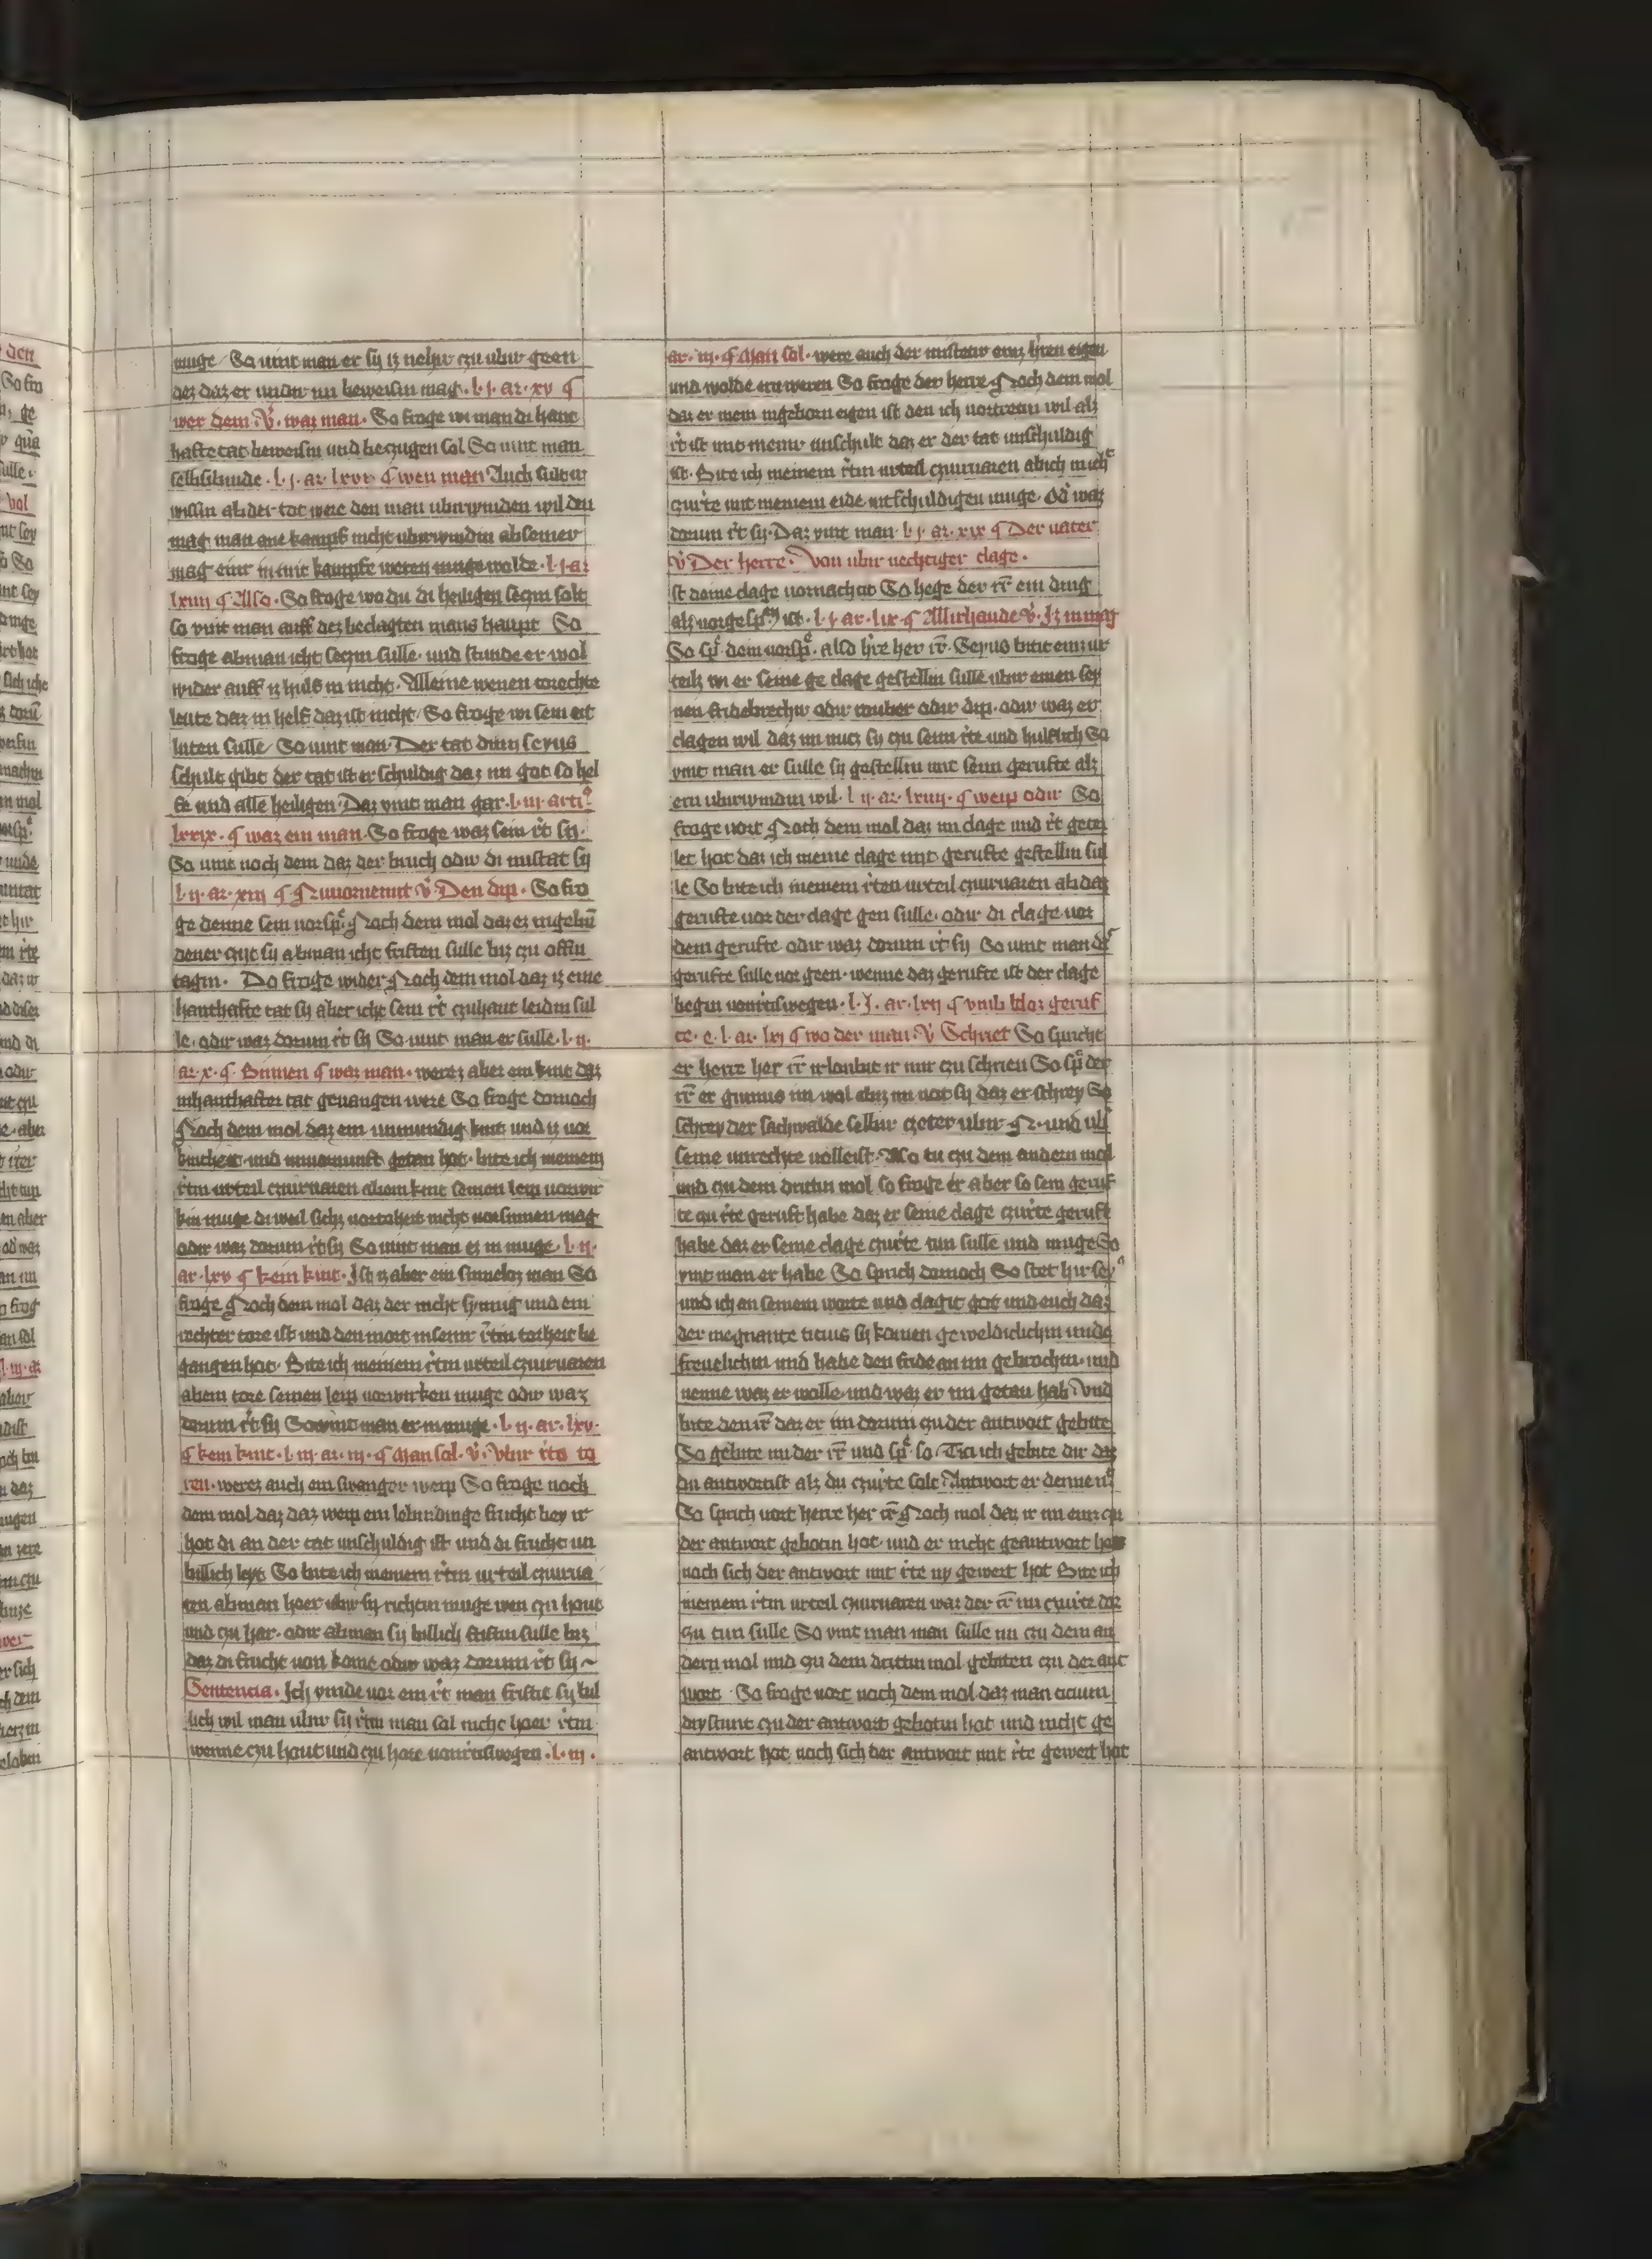 muge So vint man er sy iz nehir czu ubir geen
dez daz er undir im beweisin mag · l · j · ar · xv ¶
wer dem · v̊ · waz man · So froge wi man di hant
hafte tat beweisin und beczugen sol So vint man
selbsibinde · l · j · ar · lxvi ¶ wen man Auch sultu
wissin ab der tot were den man ubirwinden wil den
mag man ane kampf nicht ubirwindin ab seiner
mag einir in mit kampfe weren muge wolde · l · j · ar
lxiiij ¶ Also · So froge wo du di heiligen seczin solt
so vint man auff dez beclagten mans haupt So
froge ab man icht seczin sulle · und stunde er wol
wider auff iz hulf in nicht · Alleine wenen torechte
leute daz in helf daz ist nicht So froge wi sein eit
luten sulle So vint man · Der tat dirin seyus
schult gibt der tat ist er schuldig daz im got so hel
fe und alle heiligen · Daz vint man gar · l · iij · arti
lxxix · ¶ waz ein man · So froge waz sein rͤt sy ·
So vint noch dem daz der bruch odir di mistat sy
l · ij · ar · xiij ¶ Nuvornemit v̊ · Den dip · So fro
ge denne sein vorspͤ · Noch dem mol daz ez
dener czit sy ab man icht fristen sulle biz czu offin
tagin · Do froge wider Noch dem mol daz iz eine
hanthafte tat sy aber icht sein rͤt czuhant leidin sul
le · odir waz dorum rͤt sy So vint man er sulle · l · ij ·
ar · x · ¶ Binnen ¶ waz man · werez aber ein kint daz
inhanthafter tat gevangen were So froge dornoch
Noch dem mol daz ein unmundig kint und iz vor
kintheit und unvornunft getan hot · bite ich meinem
rͤtin urteil czuirvaren ab ein kint seinen leip vorwir
kin muge di weil sichz vortoheit nicht vorsinnen mag
odir waz dorum rͤt sy So vint man ez in muge · l · ij ·
ar · lxv ¶ kein kint · Ist iz aber ein sinneloz man So
froge Noch dem mol daz der nicht synnig und ein
rechter tore ist und den mort inseinir rͤtin torheit be
gangen hot · Bite ich meinem rͤtin urteil czuirvaren
ab ein tore seinen leip vorwirken muge odir waz
dorum rͤt sy So vint man er in muge · l · ij · ar · lxv ·
¶ kein kint · l · iij · ar · iij · ¶ Man sol · v̊ · Ubir rͤte to
ren · werez auch ein swanger weip So froge noch
dem mol daz daz weip ein lebindinge frucht bey ir
hot di an der tat unschuldig ist und di frucht un
billich leyt So bite ich meinem rͤtin urteil czuirva
ren ab man hoer ubir sy richtin muge wen czu hout
und czu har · odir ab man sy billich fristin sulle biz
daz di frucht von kome odir waz dorum rͤt sy ~
Sentencia · Ich vinde vor ein rͤt man friste sy bil
lich wil man ubir sy rͤtin man sol nicht hoer rͤtin
wenne czu hout und czu hore vonrͤtiswegen · l · iij ·
ar · iij · ¶ Man sol · were auch der misteter einz hren eigen
und wolde ern weren So froge der herre Noch dem mol
daz er mein ingeborn eigen ist den ich vortretin wil alz
rͤt ist mit meinir unschult daz er der tat unschuldig
ist · Bite ich meinem rͤtin urteil czuirvaren ab ich mich
czurͤte mit meinem eide intschuldigen muge · Odͤ waz
dorum rͤt sy · Daz vint man · l j · ar · xix ¶ Der vater
v̊ Der herre · Von ubir nechtiger clage ·
Ist deine clage vornachtit So hege der rͤr ein ding
alz vorgespͦchin ist · l · j · ar · lix · ¶ Allirhande v̊ · Iz in mag
So spͤ · dein vorspͤ · also hͤre her rͤr · Seyus bitit einz ur
teilz wi er seine ge clage gestellin sulle ubir einen sey
nen fridebrechir odir rouber odir dip · odir waz er
clagen wil daz im nucz sy czu seim rͤte und hulflich So
vint man er sulle sy gestellin mit seim gerufte alz
ern ubirwindin wil · l ij · ar · lxiiij · ¶ weip odir So
froge vort Noch dem mol daz im clage und rͤt getei
let hot daz ich meine clage mit gerufte gestellin sul
le So bite ich meinem rͤten urteil czuirvaren ab daz
gerufte vor der clage gen sulle · odir di clage vor
dem gerufte odir waz dorum rͤt sy So vint man dͤr
gerufte sulle vor geen · wenne daz gerufte ist der clage
begin vonrͤtiswegen · l · j · ar · lxij ¶ vmb bloz geruf
te · e · l · ar · lxj ¶ wo der man · v̊ Schriet So spricht
er herre her rͤr irloubit ir mir czu schrien So spͤ der
rͤr er gunnis im wol abiz im not sy daz er schrey So
schrey der sachwalde selbir czeter ubir N · und ubͤ
seine unrechte volleist · Also tu czu dem andern mol
und czu dem drittin mol so froge er aber so sein geruf
te czu rͤte geruft habe daz er seine clage czurͤte geruft
habe daz er seine clage czurͤte tun sulle und muge So
vint man er habe So sprich dornoch So stet hir sey
und ich an seinem worte und clagit got und euch daz
der megnante ticius sy komen geweldiclichin unde
frevelichin und habe den fride an im gebrochin · und
nenne waz er wolle · und waz er im getan hab · Und
bite den rͤr daz er im dorum czu der antwort gebite
So gebite im der rͤr und spͤ so · Tici ich gebite dir daz
du antwortist alz du czurͤte solt · Antwort er denne nͭ
So sprich vort herre her rͤr Noch mol daz ir im einz czu
der antwort gebotin hot und er nicht geantwort hot
noch sich der antwort mit rͤte ny gewert hot Bite ich
meinem rͤtin urteil czuirvaren waz der rͤr im czurͤte dor
czu tun sulle So vint man man sulle im czu dem an
dern mol und czu dem drittin mol gebiten czu der ant
wort · So froge vort noch dem mol daz man ticium
dry stunt czu der antwort gebotin hot und nicht ge
antwort hot noch sich der antwort mit rͤte gewert hot